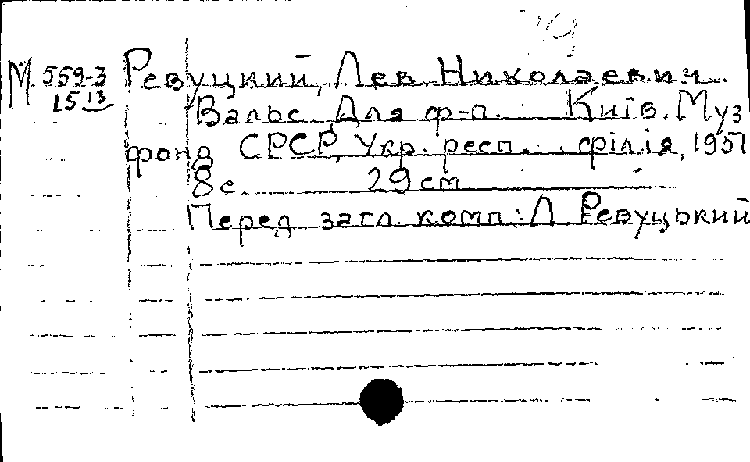 М 559-3 Ревуцкий, Лев Николаевич.
15 13 Вальс. Для ф-п. Київ. Муз
фонд СРСР, Укр. респ. філія, 1951
8 с. 29 см
Перед загл. комп: Л Ревуцький